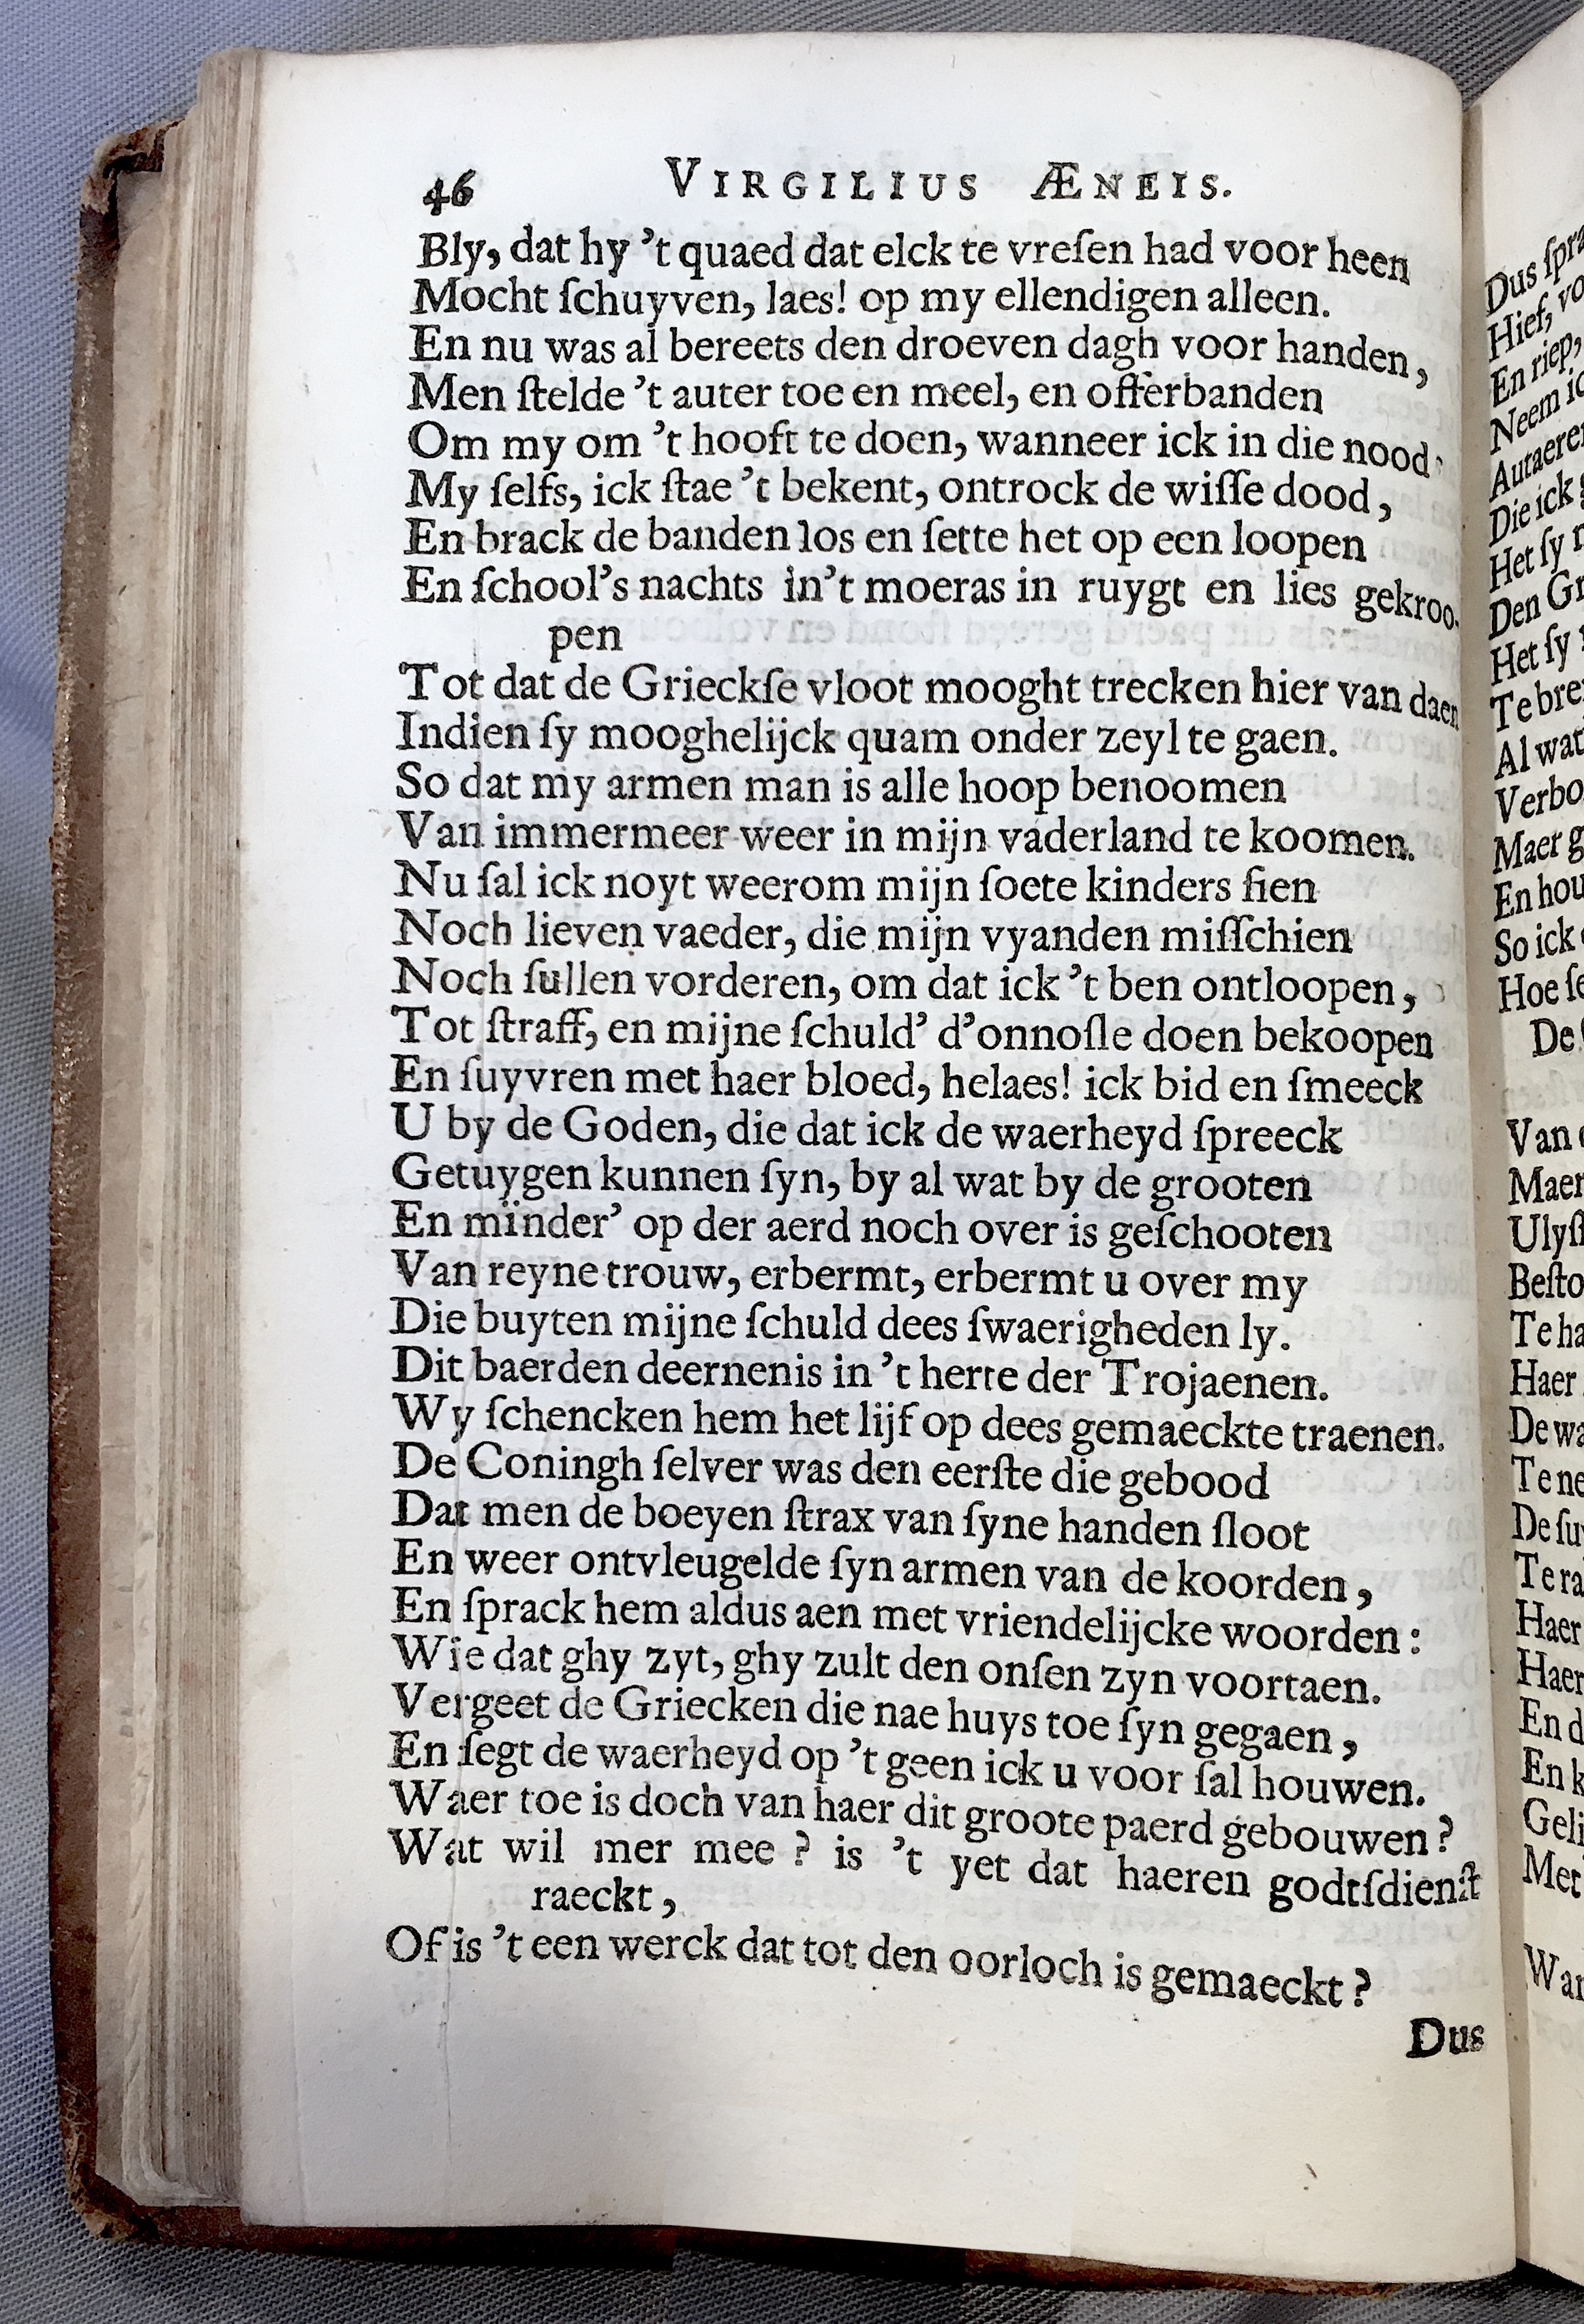 46 VIRGILIUS ÆNEIS.
Bly, dat hy 't quaed dat elck te vreſen had voor heen
Mocht ſchuyven, laes! op my ellendigen alleen.
En nu was al bereets den droeven dagh voor handen,
Men ſtelde 't auter toe en meel, en offerbanden
Om my om 't hooft te doen, wanneer ick in die nood
My ſelfs, ick ſtae 't bekent, ontrock de wiſſe dood,
En brack de banden los en ſette het op een loopen
En ſchool's nachts in't moeras in ruygt en lies gekroo-
pen
Tot dat de Grieckſe vloot mooght trecken hier van daen
Indien ſy mooghelijck quam onder zeyl te gaen.
So dat my armen man is alle hoop benoomen
Van immermeer weer in mijn vaderland te koomen.
Nu ſal ick noyt weerom mijn ſoete kinders ſien
Noch lieven vaeder, die mijn vyanden miſſchien
Noch ſullen vorderen, om dat ick 't ben ontloopen,
Tot ſtraff, en mijne ſchuld' d'onnoſle doen bekoopen
En ſuyvren met haer bloed, helaes! ick bid en ſmeeck
U by de Goden, die dat ick de waerheyd ſpreeck
Getuygen kunnen ſyn, by al wat by de grooten
En minder' op der aerd noch over is geſchooten
Van reyne trouw, erbermt, erbermt u over my
Die buyten mijne ſchuld dees ſwaerigheden ly.
Dit baerden deernenis in 't herte der Trojaenen.
Wy ſchencken hem het lijf op dees gemaeckte traenen.
De Coningh ſelver was den eerſte die gebood
Dat men de boeyen ſtrax van ſyne handen ſloot
En weer ontvleugelde ſyn armen van de koorden,
En ſprack hem aldus aen met vriendelijcke woorden:
Wie dat ghy zyt, ghy zult den onſen zyn voortaen.
Vergeet de Griecken die nae huys toe ſyn gegaen,
En ſegt de waerheyd op 't geen ick u voor ſal houwen.
Waer toe is doch van haer dit groote paerd gebouwen?
Wat wil mer mee? is 't yet dat haeren godtſdienſt
raeckt,
Of is 't een werck dat tot den oorloch is gemaeckt?
Dus
Dus
Hief,
En riep,
Neem
Die ick
Het ſy
Den
Het ſy
Al wat
Maer
En
So ick
Hoe
De
Van
Maer
Haer
De
Te
De
Te
Haer
Haer
En
En
Met